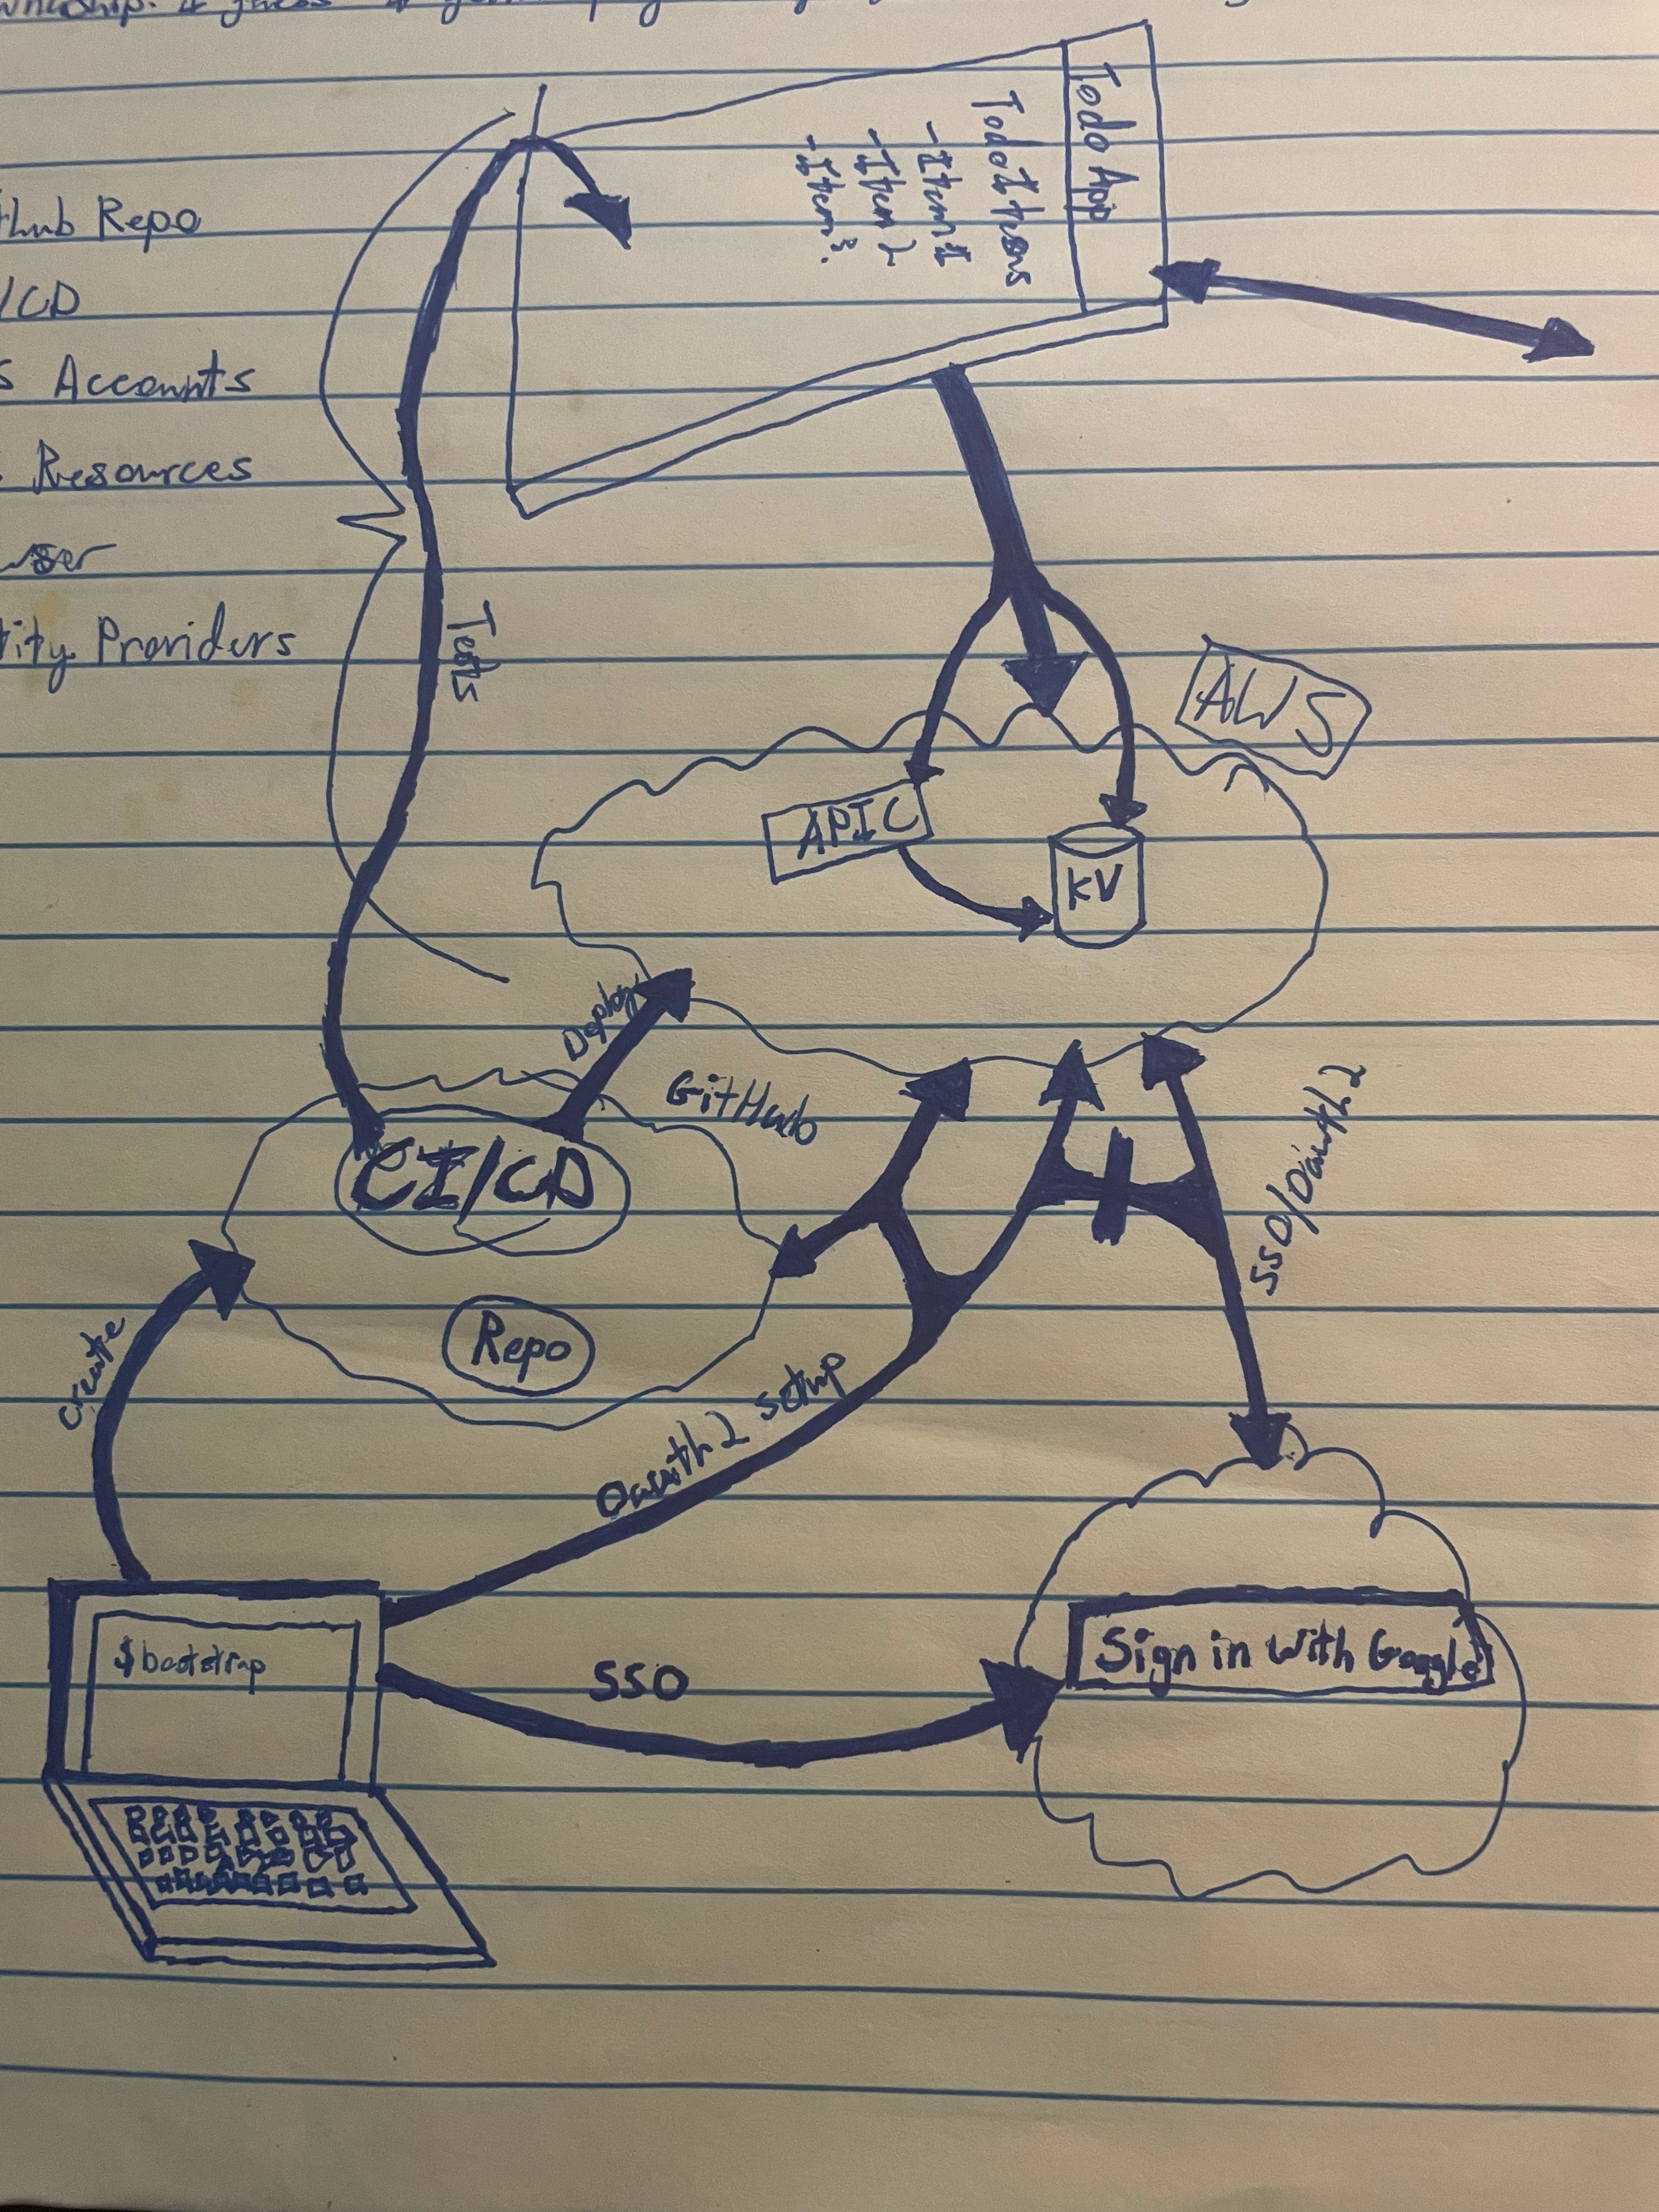 GitHub Repo
/CD
Accounts
Resources
Providers
Todo App
Todo Items
- Item 1
- Item 2
- Item 3.
Tests
AWS
APIC
KV
Deploy
GitHub
CI/CD
Repo
Create
Oauth2 setup
SSO/Oauth2
$bootstrap
SSO
Sign in with Google